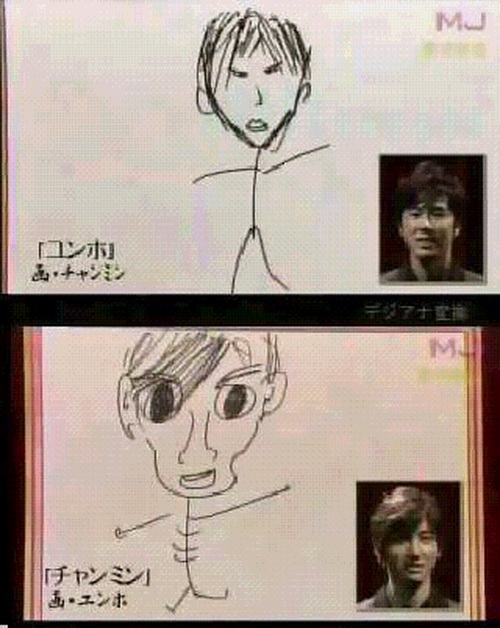 MJ
「ユンホ」
画・チャンミン
デジアナ変換
MJ
「チャンミン」
画・ユンホ